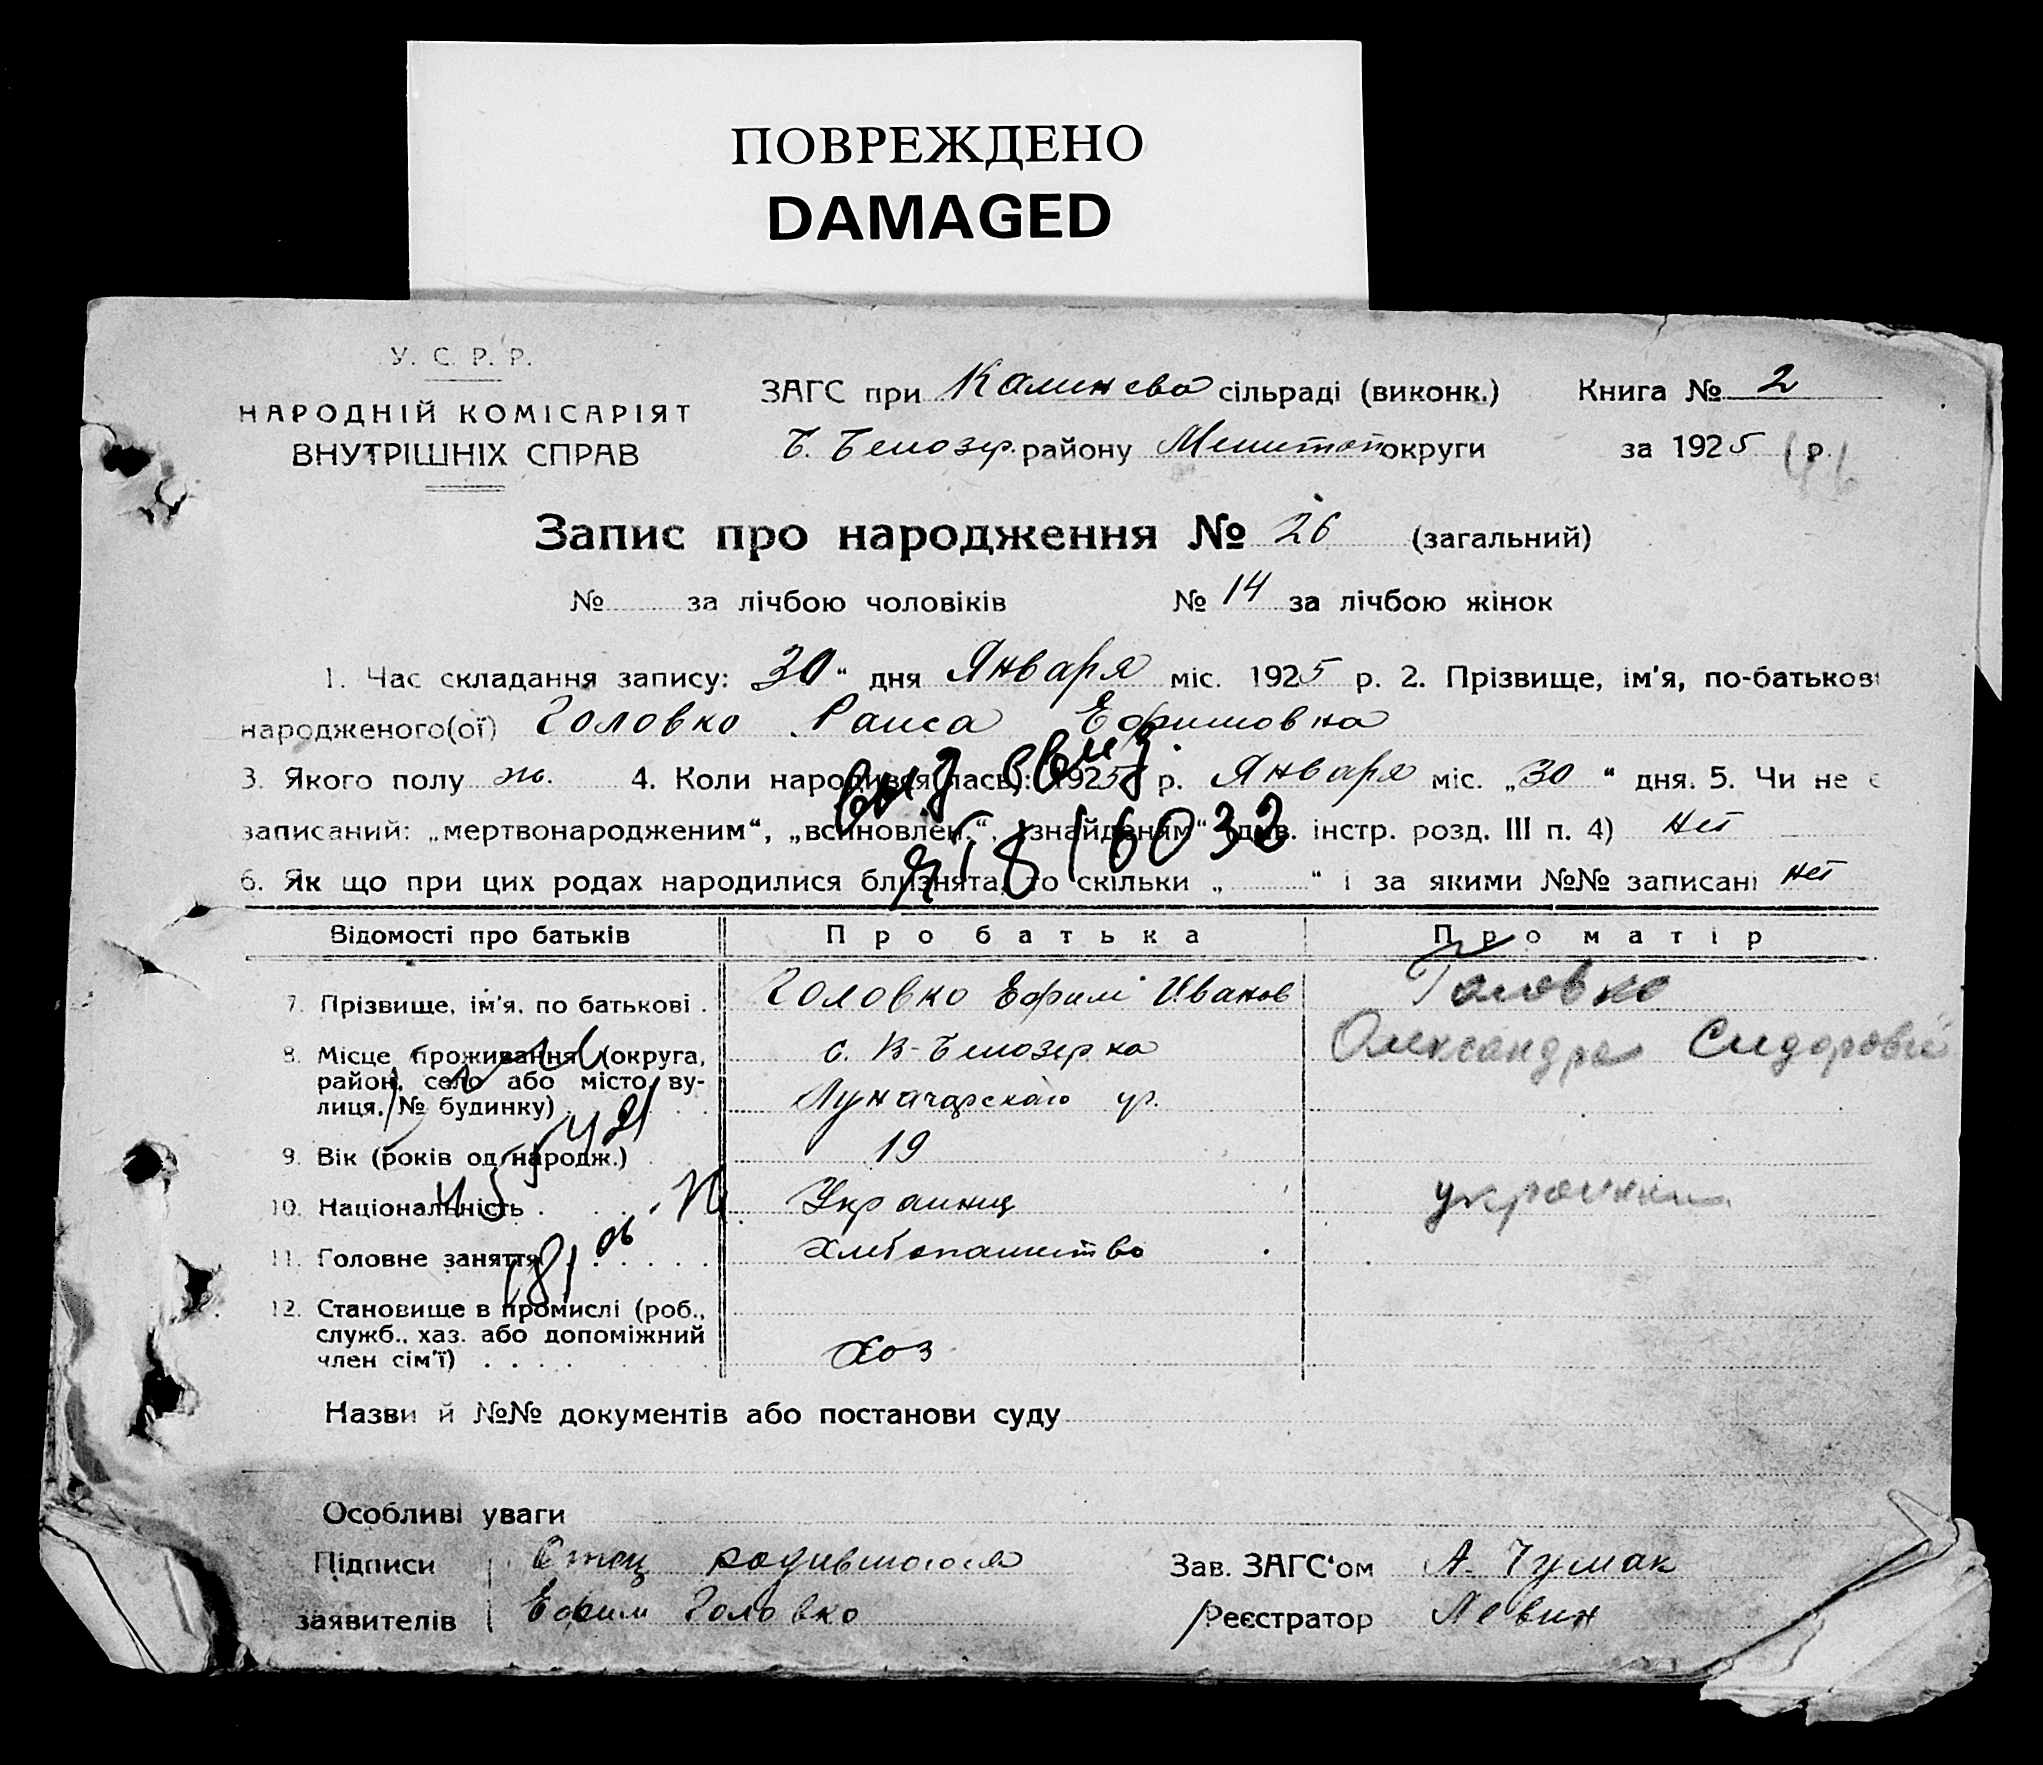 ПОВРЕЖДЕНО
DAMAGED
У. С. Р. Р.
НАРОДНІЙ КОМІСАРІЯТ
ВНУТРІШНІХ СПРАВ
ЗАГС при сільраді (виконк.) Книга № 2
Б. Белозер. району Мелитоп округи за 1925 р.
Запис про народження № 26 (загальний)
№ за лічбою чоловіків № 14 за лічбою жінок
1. Час складання запису: 30 “ дня Января міс. 1925 р. 2. Прізвище, ім'я, по-батькові
народженого(ої) Головко Раиса Ефимовна
3. Якого полу ж. 4. Коли народився(лась): 1925 р. Января міс. „30“ дня. 5. Чи не є
записаний: „мертвонародженим“, „всиновлен.“, „знайденям“ (див. інстр. розд. III п. 4) нет
6. Як що при цих родах народилися близнята, то скільки „ “ і за якими №№ записані нет
Відомості про батьків Про батька Про матір
7. Прізвище, ім'я, по батькові . Головко Ефим Иванов Головко
8. Місце проживання (округа, с. В-Белозерка Олександра
район, село або місто, ву-
лиця, № будинку) Луначарскаго ул.
9. Вік (років од народж.) 19
10. Національність Украинец
11. Головне заняття Хлебопашество
12. Становище в промислі (роб.,
служб., хаз. або допоміжний
член сім'ї) Хоз
Назви й №№ документів або постанови суду
Особливі уваги
Підписи Отец родившагося Зав. ЗАГС'ом А. Чумак
заявителів Ефим Головко Реєстратор Левин